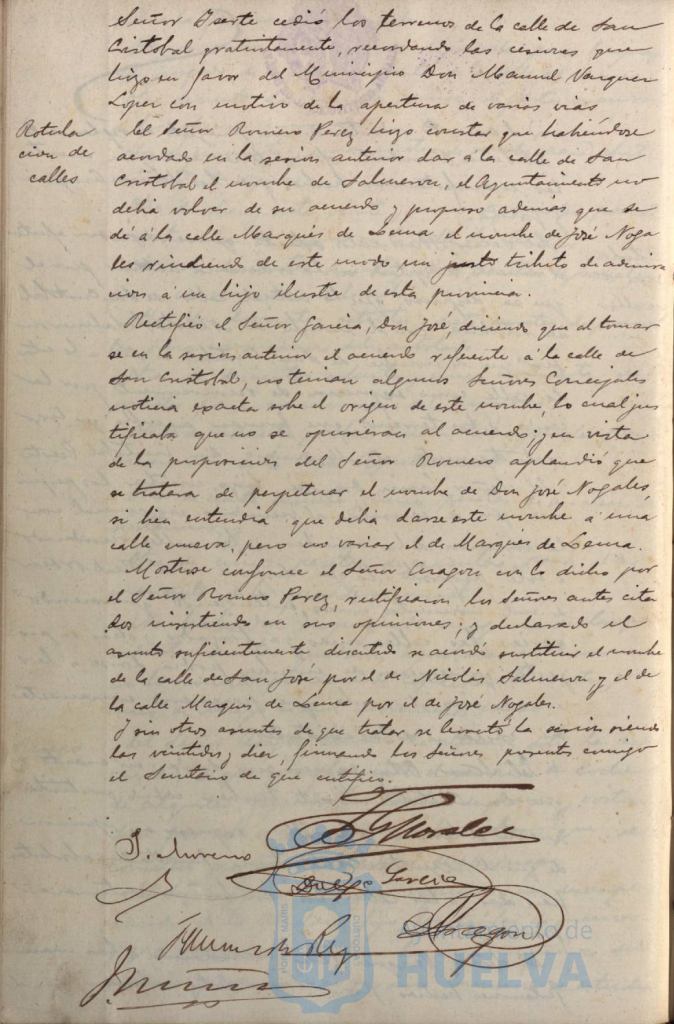 Señor Iserte cedió los terrenos de la calle de San
Cristobal gratuitamente, recordando las cesiones que
hizo en favor del Municipio Don Manuel Vazquez
Lopez con motivo de la apertura de varias vias
Rotula
cion de
calles
El Señor Romero Perez hizo constar que habiéndose
acordado en la sesion anterior dar á la calle de San
Cristobal el nombre de Salmeron, el Ayuntamiento no
debia volver de su acuerdo y propuso ademas que se
dé á la calle Marqués de Lema el nombre de José Noga
les rindiendo de este modo un justo tributo de admira
cion á un hijo ilustre de esta provincia.
Rectificó el Señor Garcia, Don José, diciendo que al tomar
se en la sesion anterior el acuerdo referente á la calle de
San Cristobal, no tenian algunos Señores Concejales
noticia exacta sobre el origen de este nombre, lo cual jus
tificaba que no se opusieran al acuerdo; y en vista
de la proposicion del Señor Romero aplaudió que
se tratara de perpetuar el nombre de Don José Nogales,
si bien entendia que debia darse este nombre á una
calle nueva, pero no variar el de Marqués de Lema.
Mostrose conforme el Señor Aragon con lo dicho por
el Señor Romero Perez, rectificaron los Señores antes cita
dos insistiendo en sus opiniones; y declarado el
asunto suficientemente discutido se acordó sustituir el nombre
de la calle de San José por el de Nicolás Salmeron y el de
la calle Marqués de Lema por el de José Nogales.
Y sin otros asuntos de que tratar se levantó la sesion siendo
las veintidos y diez, firmando los Señores presentes conmigo
el Secretario de que certifico.
Morales
J. Moreno
Diego Garcia
Aragon
Ayuntamiento de
HUELVA